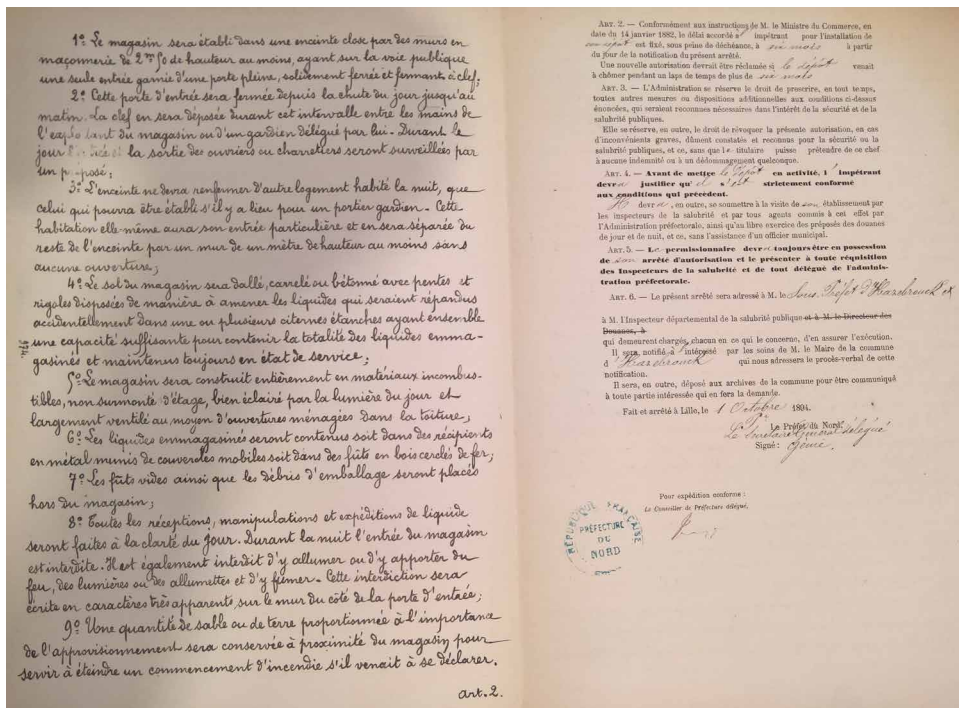 1º Le magasin sera établi dans une enceinte close par des murs en
maçonnerie de 2m50 de hauteur au moins, ayant sur la voie publique
une seule entrée garnie d'une porte pleine, solidement ferrée et fermant à clef;
2º Cette porte d'entrée sera fermée depuis la chute du jour jusqu'au
matin. La clef en sera déposée durant cet intervalle entre les mains de
l'exploitant du magasin ou d'un gardien délégué par lui - Durant le
jour l'entrée et la sortie des ouvriers ou charretiers seront surveillées par
un préposé;
3º L'enceinte ne devra renfermer d'autre logement habité la nuit, que
celui qui pourra être établi s'il y a lieu pour un portier gardien - Cette
habitation elle même aura son entrée particulière et en sera séparée du
reste de l'enceinte par un mur de un mètre de hauteur au moins sans
aucune ouverture;
4º Le sol du magasin sera dallé, carrelé ou bétonné avec pentes et
rigoles disposées de manière à amener les liquides qui seraient répandus
accidentellement dans une ou plusieurs citernes étanches ayant ensemble
une capacité suffisante pour contenir la totalité des liquides emma-
gasinés et maintenus toujours en état de service;
974.
5º Le magasin sera construit entièrement en matériaux incombus-
tibles, non surmonté d'étage, bien éclairé par la lumière du jour et
largement ventilé au moyen d'ouvertures ménagées dans la toiture;
6º Les liquides emmagasinés seront contenus soit dans des récipients
en métal munis de couvercles mobiles soit dans des fûts en bois cerclés de fer;
7º Les fûts vides ainsi que les débris d'emballage seront placés
hors du magasin;
8º Toutes les réceptions, manipulations et expéditions de liquide
seront faites à la clarté du jour. Durant la nuit l'entrée du magasin
est interdite. Il est également interdit d'y allumer ou d'y apporter du
feu, des lumières ou des allumettes et d'y fumer - Cette interdiction sera
écrite en caractères très apparents, sur le mur du côté de la porte d'entrée;
9º Une quantité de sable ou de terre proportionnée à l'importance
de l'approvisionnement sera conservée à proximité du magasin pour
servir à éteindre un commencement d'incendie s'il venait à se déclarer.
art. 2.
ART. 2. — Conformément aux instructions de M. le Ministre du Commerce, en
date du 14 janvier 1882, le délai accordé à l'impétrant pour l'installation de
son dépôt est fixé, sous peine de déchéance, à six mois à partir
du jour de la notification du présent arrêté.
Une nouvelle autorisation devrait être réclamée si le dépôt venait
à chômer pendant un laps de temps de plus de six mois
ART. 3. — L'Administration se réserve le droit de prescrire, en tout temps,
toutes autres mesures ou dispositions additionnelles aux conditions ci-dessus
énoncées, qui seraient reconnues nécessaires dans l'intérêt de la sécurité et de la
salubrité publiques.
Elle se réserve, en outre, le droit de révoquer la présente autorisation, en cas
d'inconvénients graves, dûment constatés et reconnus pour la sécurité ou la
salubrité publiques, et ce, sans que le titulaire puisse prétendre de ce chef
à aucune indemnité ou à un dédommagement quelconque.
ART. 4. — Avant de mettre le dépôt en activité, l'impétrant
devra justifier qu'il s'est strictement conformé
aux conditions qui précèdent.
Il devra, en outre, se soumettre à la visite de son établissement par
les inspecteurs de la salubrité et par tous agents commis à cet effet par
l'Administration préfectorale, ainsi qu'au libre exercice des préposés des douanes
de jour et de nuit, et ce, sans l'assistance d'un officier municipal.
ART. 5. — Le permissionnaire devra toujours être en possession
de son arrêté d'autorisation et le présenter à toute réquisition
des Inspecteurs de la salubrité et de tout délégué de l'adminis-
tration préfectorale.
ART. 6. — Le présent arrêté sera adressé à M. le Sous Préfet d'Hazebrouck et
à M. l'Inspecteur départemental de la salubrité publique et à M. le Directeur des
Douanes, à
qui demeurent chargés, chacun en ce qui le concerne, d'en assurer l'exécution.
Il sera, notifié à l'intéressé par les soins de M. le Maire de la commune
d'Hazebrouck qui nous adressera le procès-verbal de cette
notification.
Il sera, en outre, déposé aux archives de la commune pour être communiqué
à toute partie intéressée qui en fera la demande.
Fait et arrêté à Lille, le 1 Octobre 1894.
Le Préfet du Nord,
Le Secrétaire Général délégué
Signé:
Pour expédition conforme :
Le Conseiller de Préfecture délégué,
RÉPUBLIQUE FRANÇAISE
PRÉFECTURE
DU
NORD